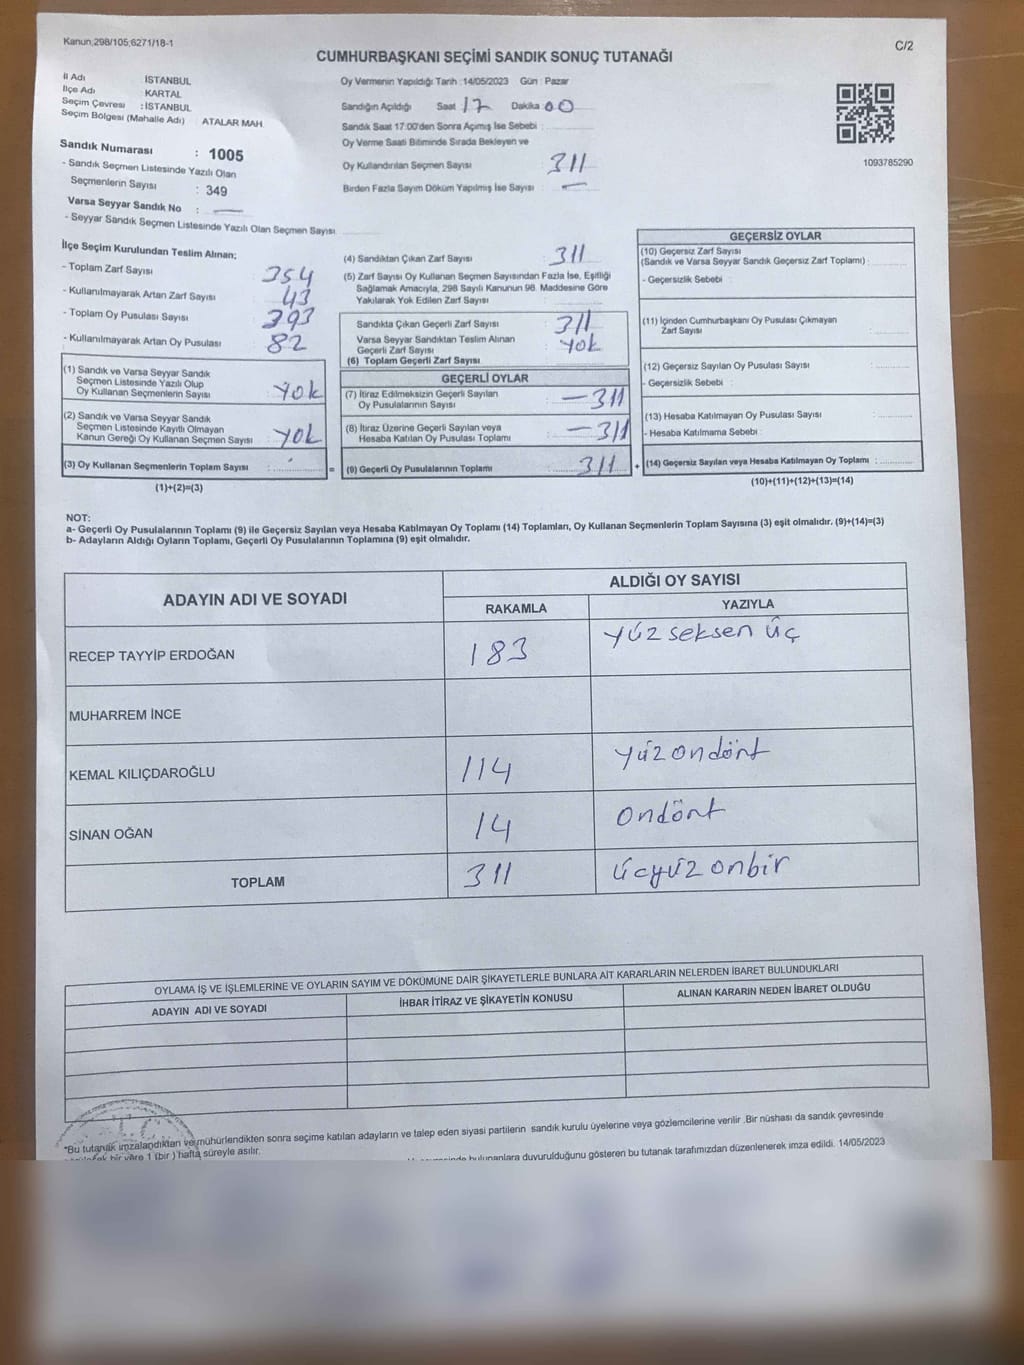 Kanun 298/105;6271/18-1
C/2
CUMHURBAŞKANI SEÇİMİ SANDIK SONUÇ TUTANAĞI
İl Adı İSTANBUL
İlçe Adı KARTAL
Seçim Çevresi : İSTANBUL
Seçim Bölgesi (Mahalle Adı) ATALAR MAH.
Sandık Numarası : 1005
- Sandık Seçmen Listesinde Yazılı Olan
Seçmenlerin Sayısı : 349
Varsa Seyyar Sandık No : —
- Seyyar Sandık Seçmen Listesinde Yazılı Olan Seçmen Sayısı
Oy Vermenin Yapıldığı Tarih :14/05/2023 Gün : Pazar
Sandığın Açıldığı Saat 17 Dakika 00
Sandık Saat 17:00'den Sonra Açımış İse Sebebi :
Oy Verme Saati Bitiminde Sırada Bekleyen ve
Oy Kullandırılan Seçmen Sayısı 311
Birden Fazla Sayım Döküm Yapılmış İse Sayısı —
1093785290
İlçe Seçim Kurulundan Teslim Alınan;
- Toplam Zarf Sayısı 354
- Kullanılmayarak Artan Zarf Sayısı 43
- Toplam Oy Pusulası Sayısı 393
- Kullanılmayarak Artan Oy Pusulası 82
(1) Sandık ve Varsa Seyyar Sandık
Seçmen Listesinde Yazılı Olup
Oy Kullanan Seçmenlerin Sayısı : yok
(2) Sandık ve Varsa Seyyar Sandık
Seçmen Listesinde Kayıtlı Olmayan
Kanun Gereği Oy Kullanan Seçmen Sayısı : yok
(3) Oy Kullanan Seçmenlerin Toplam Sayısı :
(1)+(2)=(3)
(4) Sandıktan Çıkan Zarf Sayısı 311
(5) Zarf Sayısı Oy Kullanan Seçmen Sayısından Fazla İse, Eşitliği
Sağlamak Amacıyla, 298 Sayılı Kanunun 98. Maddesine Göre
Yakılarak Yok Edilen Zarf Sayısı
Sandıkta Çıkan Geçerli Zarf Sayısı 311
Varsa Seyyar Sandıktan Teslim Alınan
Geçerli Zarf Sayısı yok
(6) Toplam Geçerli Zarf Sayısı
=
GEÇERLİ OYLAR
(7) İtiraz Edilmeksizin Geçerli Sayılan
Oy Pusulalarının Sayısı — 311
(8) İtiraz Üzerine Geçerli Sayılan veya
Hesaba Katılan Oy Pusulası Toplamı — 311
(9) Geçerli Oy Pusulalarının Toplamı : 311
+
GEÇERSİZ OYLAR
(10) Geçersiz Zarf Sayısı
(Sandık ve Varsa Seyyar Sandık Geçersiz Zarf Toplamı) :
- Geçersizlik Sebebi :
(11) İçinden Cumhurbaşkanı Oy Pusulası Çıkmayan
Zarf Sayısı :
(12) Geçersiz Sayılan Oy Pusulası Sayısı :
- Geçersizlik Sebebi :
(13) Hesaba Katılmayan Oy Pusulası Sayısı :
- Hesaba Katılmama Sebebi :
(14) Geçersiz Sayılan veya Hesaba Katılmayan Oy Toplamı :
(10)+(11)+(12)+(13)=(14)
NOT:
a- Geçerli Oy Pusulalarının Toplamı (9) ile Geçersiz Sayılan veya Hesaba Katılmayan Oy Toplamı (14) Toplamları, Oy Kullanan Seçmenlerin Toplam Sayısına (3) eşit olmalıdır. (9)+(14)=(3)
b- Adayların Aldığı Oyların Toplamı, Geçerli Oy Pusulalarının Toplamına (9) eşit olmalıdır.
ADAYIN ADI VE SOYADI ALDIĞI OY SAYISI
RAKAMLA YAZIYLA
RECEP TAYYİP ERDOĞAN 183 yüz seksen üç
MUHARREM İNCE
KEMAL KILIÇDAROĞLU 114 yüzondört
SİNAN OĞAN 14 Ondört
TOPLAM 311 üçyüz onbir
OYLAMA İŞ VE İŞLEMLERİNE VE OYLARIN SAYIM VE DÖKÜMÜNE DAİR ŞİKAYETLERLE BUNLARA AİT KARARLARIN NELERDEN İBARET BULUNDUKLARI
ADAYIN ADI VE SOYADI İHBAR İTİRAZ VE ŞİKAYETİN KONUSU ALINAN KARARIN NEDEN İBARET OLDUĞU
T.C.
*Bu tutanak imzalandıktan ve mühürlendikten sonra seçime katılan adayların ve talep eden siyasi partilerin sandık kurulu üyelerine veya gözlemcilerine verilir .Bir nüshası da sandık çevresinde
bir yere 1 (bir ) hafta süreyle asılır.
bulunanlara duvurulduğunu gösteren bu tutanak tarafımızdan düzenlenerek imza edildi. 14/05/2023